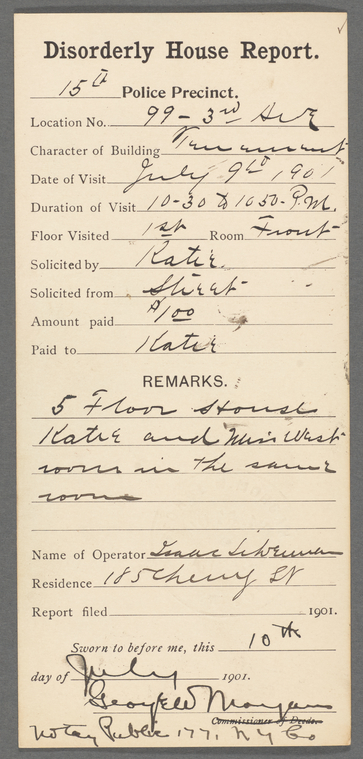 Disorderly House Report.
15th Police Precinct.
Location No. 99 - 3rd AvE
Character of Building Tenament
Date of Visit July 9th 1901
Duration of Visit 10-30 to 1050- P.M.
Floor Visited 1st Room Front
Solicited by Katie
Solicited from Street
Amount paid $1.00
Paid to Katie
REMARKS.
5 Floor House
Katie and Miss West
room in the same
room
Name of Operator Isaac
Residence 185 Cherry St
Report filed 1901.
Sworn to before me, this 10th
day of July 1901.
George W Morgan
Commissioner of Deeds.
Notary Public 177, N Y Co